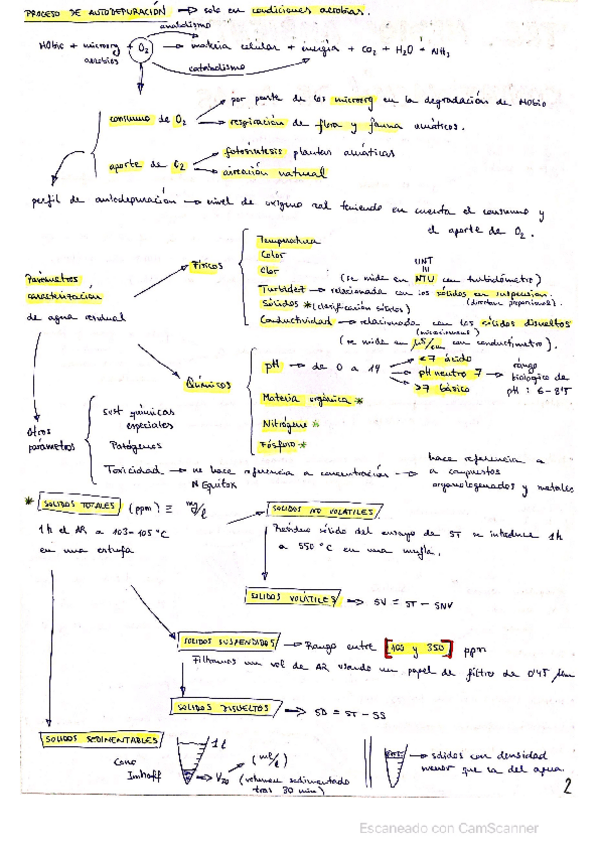 PROCESO DE AUTODEPURACIÓN → solo en condiciones aerobias.
anabolismo
MObio + microorg aerobios + O2 → materia celular + energía + CO2 + H2O + NH3
catabolismo
consumo de O2 → por parte de los microorg en la degradación de MObio
→ respiración de flora y fauna acuáticas.
aporte de O2 → fotosíntesis plantas acuáticas
→ aireación natural
perfil de autodepuración → nivel de oxígeno real teniendo en cuenta el consumo y
el aporte de O2.
Parámetros
caracterización
de agua residual
Físicos
Temperatura
Color
Olor
UNT
(se mide en NTU con turbidímetro)
Turbidez → relacionada con los sólidos en suspensión.
(directam. proporcional).
Sólidos *(clasificación sólidos)
Conductividad → relacionada con los sólidos disueltos
(microsiemens)
(se mide en µS/cm con conductímetro).
Químicos
pH → de 0 a 14
<7 ácido
pH neutro 7 → rango biológico de pH: 6-8'5
>7 básico
Materia orgánica *
Nitrógeno *
Fósforo *
Otros
parámetros
Sust químicas
especiales
Patógenos
Toxicidad → no hace referencia a concentración → hace referencia a
a compuestos
organohalogenados y metales
N Equitox
* SOLIDOS TOTALES (ppm) ≡ mg/l
1h el AR a 103-105°C
en una estufa
SOLIDOS NO VOLATILES
Residuo sólido del ensayo de ST se introduce 1h
a 550°C en una mufla.
SOLIDOS VOLÁTILES → SV = ST - SNV
SOLIDOS SUSPENDIDOS → Rango entre [100 y 350] ppm
Filtramos un vol de AR usando un papel de filtro de 0'45 µm
SOLIDOS DISUELTOS → SD = ST - SS
SOLIDOS SEDIMENTABLES
Cono
Imhoff
1l
V30
(ml/l)
(volumen sedimentado
tras 30 min)
→ sólidos con densidad
menor que la del agua.
2
Escaneado con CamScanner